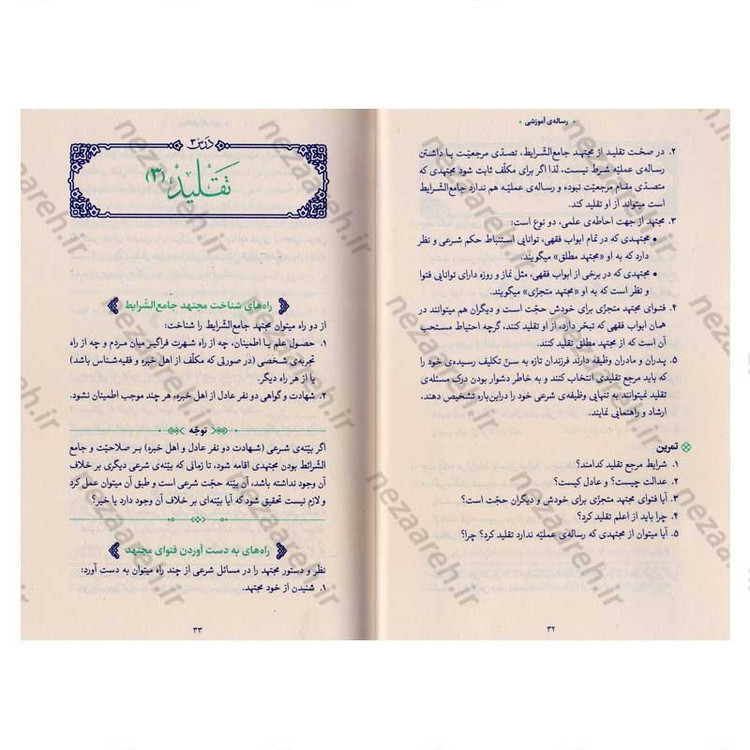 رساله‌ی آموزشی
۲. در صحّت تقلید از مجتهد جامع‌الشّرایط، تصدّی مرجعیّت یا داشتن
رساله‌ی عملیّه شرط نیست، لذا اگر برای مکلّف ثابت شود مجتهدی که
متصدّی مقام مرجعیّت نبوده و رساله‌ی عملیّه هم ندارد جامع‌الشّرایط
است میتواند از او تقلید کند.
۳. مجتهد از جهت احاطه‌ی علمی، دو نوع است:
• مجتهدی که در تمام ابواب فقهی، توانایی استنباط حکم شرعی و نظر
دارد که به او «مجتهد مطلق» میگویند.
• مجتهدی که در برخی از ابواب فقهی، مثل نماز و روزه دارای توانایی فتوا
و نظر است که به او «مجتهد متجزّی» میگویند.
۴. فتوای مجتهد متجزّی برای خودش حجّت است و دیگران هم میتوانند در
همان ابواب فقهی که تبحّر دارد، از او تقلید کنند، گرچه احتیاط مستحب
آن است که از مجتهد مطلق تقلید کنند.
۵. پدران و مادران وظیفه دارند فرزندان تازه به سنّ تکلیف رسیده‌ی خود را
که باید مرجع تقلیدی انتخاب کنند و به خاطر دشوار بودن درک مسئله‌ی
تقلید نمیتوانند به تنهایی وظیفه‌ی شرعی خود را دراین‌باره تشخیص دهند،
ارشاد و راهنمایی نمایند.
تمرین
۱. شرایط مرجع تقلید کدامند؟
۲. عدالت چیست؟ و عادل کیست؟
۳. آیا فتوای مجتهد متجزّی برای خودش و دیگران حجّت است؟
۴. چرا باید از اعلم تقلید کرد؟
۵. آیا میتوان از مجتهدی که رساله‌ی عملیّه ندارد تقلید کرد؟ چرا؟
۳۲
درس ۳
تقلید (۳)
راه‌های شناخت مجتهد جامع‌الشّرایط
از دو راه میتوان مجتهد جامع‌الشّرایط را شناخت:
۱. حصول علم یا اطمینان، چه از راه شهرت فراگیر میان مردم و چه از راه
تجربه‌ی شخصی (در صورتی که مکلّف از اهل خبره و فقیه‌شناس باشد)
یا از هر راه دیگر.
۲. شهادت و گواهی دو نفر عادل از اهل خبره، هر چند موجب اطمینان نشود.
توجّه
اگر بیّنه‌ی شرعی (شهادت دو نفر عادل و اهل خبره) بر صلاحیّت و جامع
الشّرائط بودن مجتهدی اقامه شود، تا زمانی که بیّنه‌ی شرعی دیگری بر خلاف
آن وجود نداشته باشد، آن بیّنه حجّت شرعی است و طبق آن میتوان عمل کرد
و لازم نیست تحقیق شود که آیا بیّنه‌ای بر خلاف آن وجود دارد یا خیر؟
راه‌های به دست آوردن فتوای مجتهد
نظر و دستور مجتهد را در مسائل شرعی از چند راه میتوان به دست آورد:
۱. شنیدن از خود مجتهد.
۳۳
nezaareh.ir